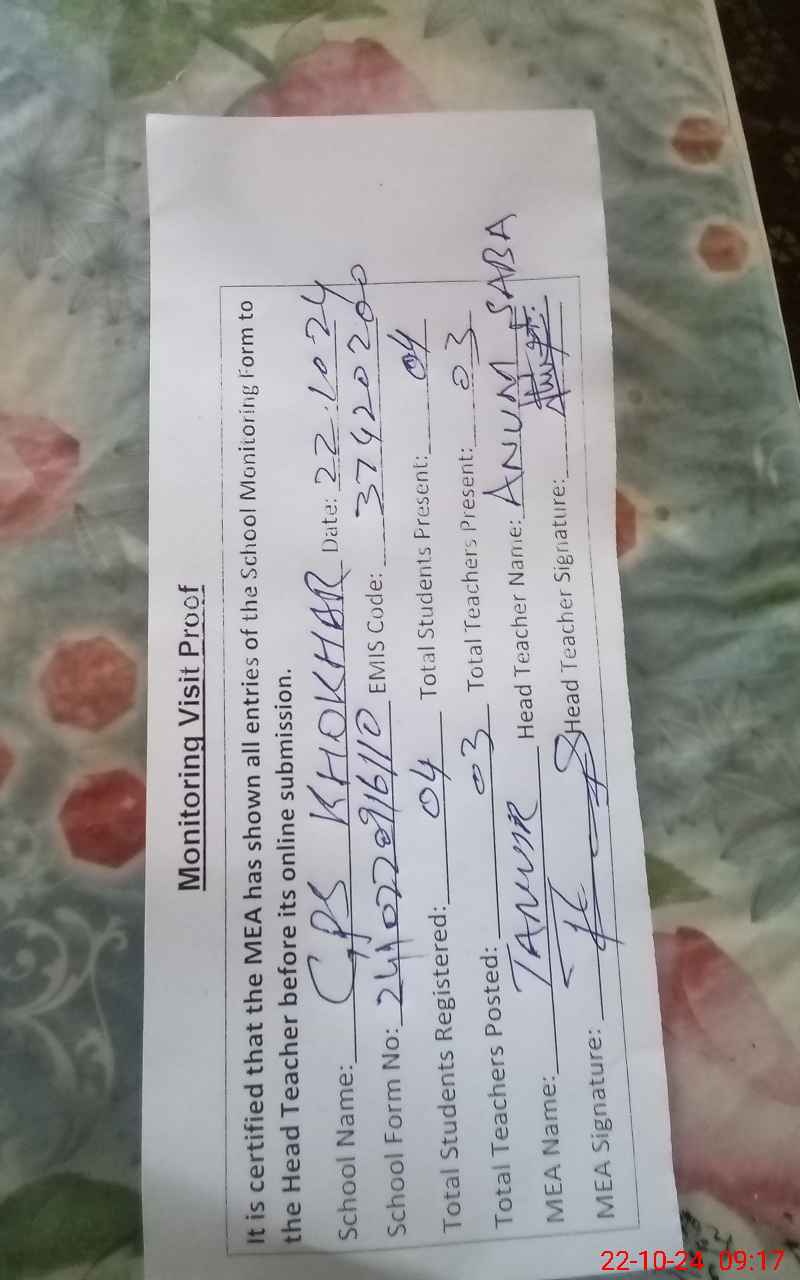 Monitoring Visit Proof
It is certified that the MEA has shown all entries of the School Monitoring Form to
the Head Teacher before its online submission.
School Name: GPS KHOKHAR Date: 22.1024
School Form No: EMIS Code: 37420200
Total Students Registered: 04 Total Students Present: 04
Total Teachers Posted: 03 Total Teachers Present: 03
MEA Name: TANVIR Head Teacher Name: ANUM SABA
MEA Signature: Head Teacher Signature:
22-10-24 09:17